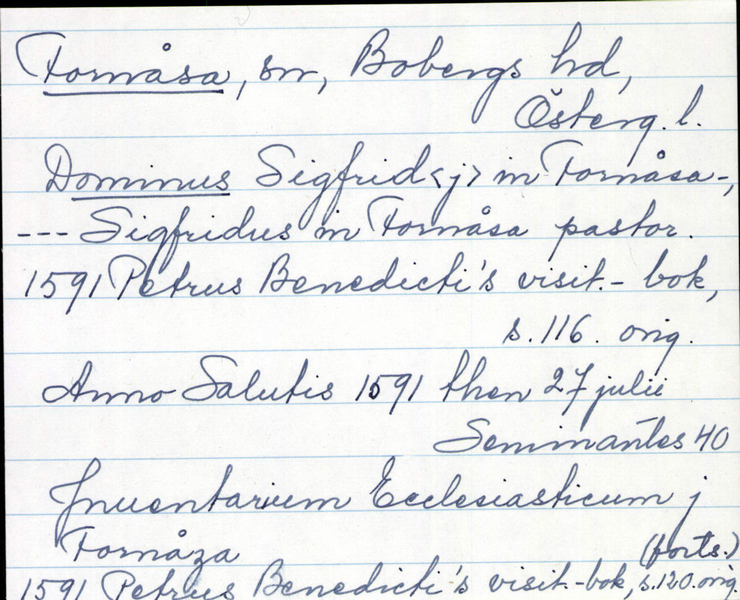 Fornåsa, sn, Bobergs hd,
Österg. l.
Dominus Sigfrid<j> in Fornåsa -,
--- Sigfridus in Fornåsa pastor.
1591 Petrus Benedicti's visit.- bok,
s. 116. orig.
Anno Salutis 1591 then 27 julii
Seminantes 40
Inuentarium Ecclesiasticum j
Fornåza (forts.)
1591 Petrus Benedicti's visit.-bok, s.120.orig.